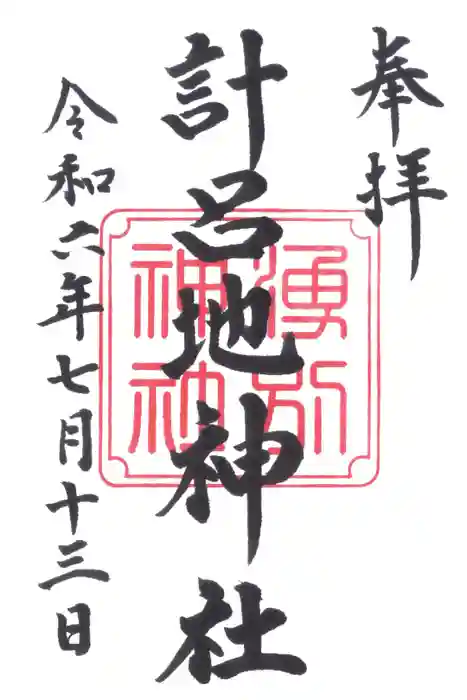 奉拝
計呂地神社
湧別
神社
令和六年七月十三日